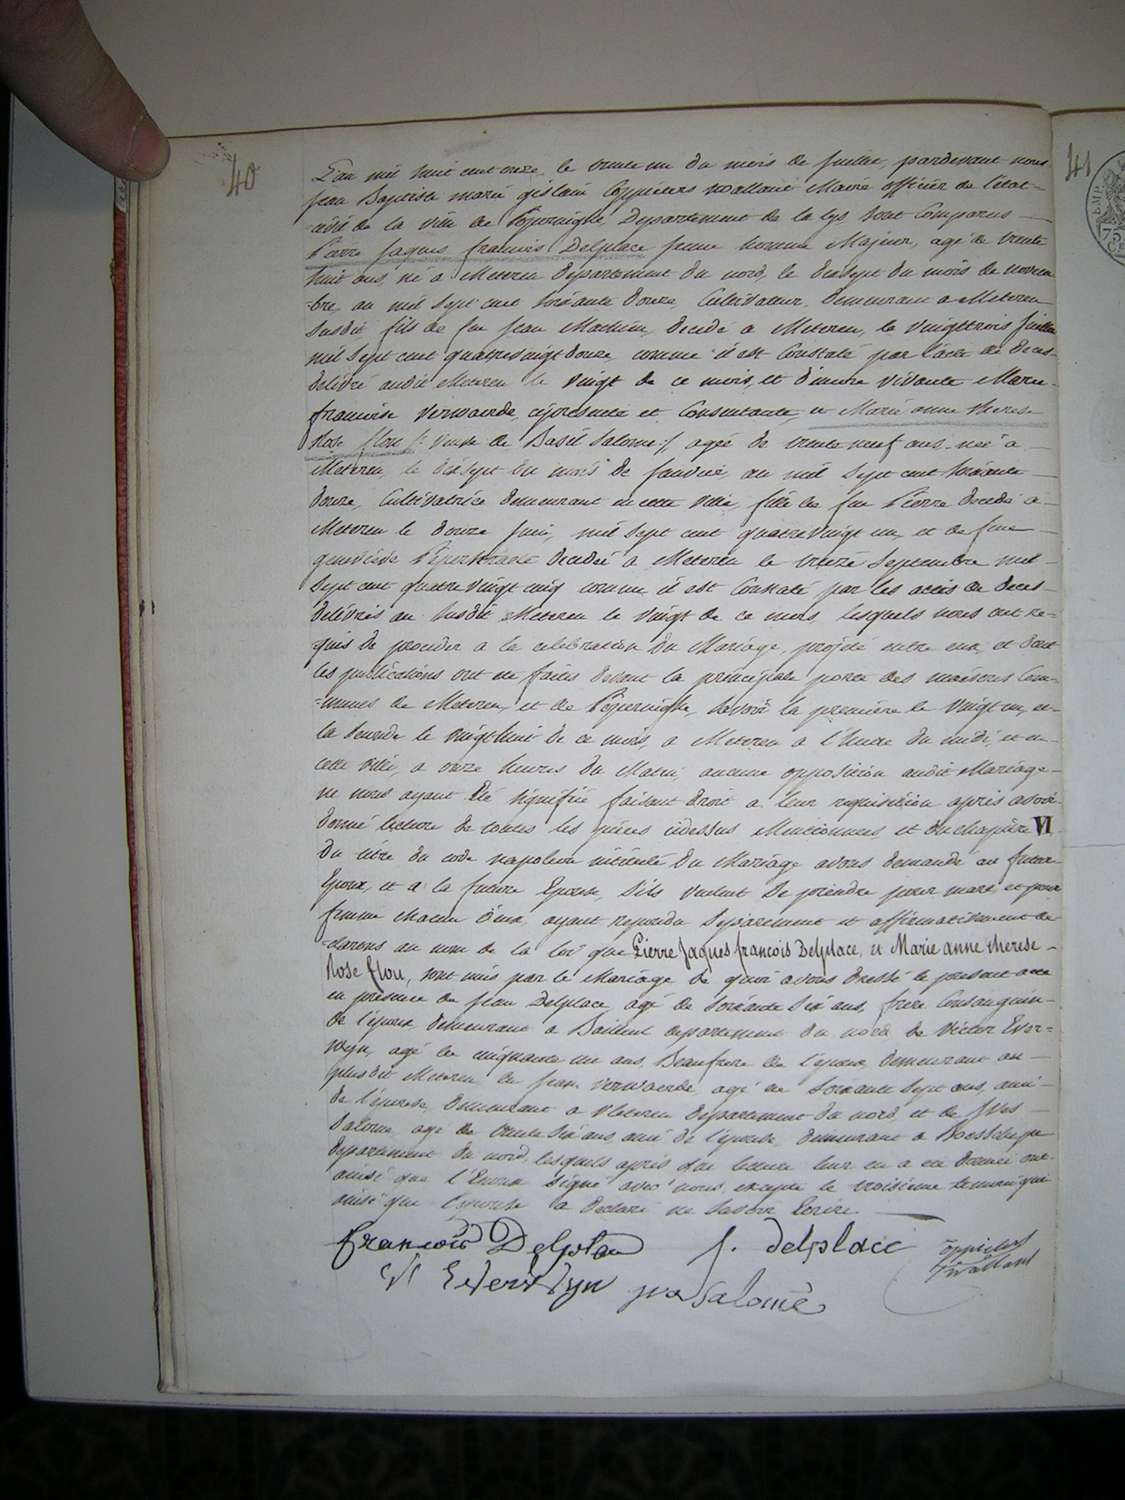 40
41
L'an mil huit cent onze, le trente un du mois de Juillet, pardevant nous
Jean Baptiste marie gislain Coppieters wallant Maire officier de l'etat-
-civil de la ville de Poperinghe, Departement de la lys sont Comparus
Pierre Jaques francois Delplace jeune homme Majeur, agé de trente
huit ans, né a Meteren departement du nord, le dixsept du mois de novem
-bre, an mil sept cent soixante douze, Cultivateur, demeurant a Meteren
susdit, fils de feu Jean Mathieu, decedé a Meteren, le vingttrois Juillet
mil sept cent quatrevingt douze, comme il est Constaté par l'acte de deces
delivré audit Meteren le vingt de ce mois, et d'encore vivante Marie
francoise verwaerde, cipresente et Consentante, et Marie anne therese
Rose flou /: veuve de Basil Salome :/ agée de trente neuf ans née a
Meteren, le dixsept du mois de Janvier, an mil sept cent soixante
douze, Cultivatrice demeurant en cette ville, fille de feu Pierre decedé a
Meteren le douze Juin, mil sept cent quatrevingt un, et de feue
genevieve decedée a Meteren le treize Septembre mil
sept cent quatre vingt cinq comme il est Constaté par les actes de deces
delivrés au susdit Meteren le vingt de ce mois, lesquels nous ont re-
quis de proceder a la celebration du Mariage, projeté entre eux, et dont
les publications ont été faites devant la principale porte des maisons Com-
-munes de Meteren, et de Poperinghe, savoir la premiere le vingt un, et
la seconde le vingthuit de ce mois, a Meteren a l'heure du midi, et en
cette ville, a onze heures du Matin, aucune opposition audit Mariage
ne nous ayant été signifiée faisant droit a leur requisition apres avoir
donné lecture de toutes les pieces cidessus Mentionnées et du chapitre VI
du titre du code napoleon intitulé du Mariage avons demandé au futur
Epoux, et a la future Epouse, s'ils veulent se prendre pour mari et pour
femme chacun d'eux, ayant repondu separement et affirmativement de
-clarons au nom de la loi que Pierre Jaques francois Delplace, et Marie anne therese
Rose flou, sont unis par le Mariage de quoi avons dressé le present acte
en presence de Jean Delplace agé de soixante six ans, frere Consanguin
de l'epoux, demeurant a Bailleul departement du nord, de Victor Ever-
weyn, agé de cinquante un ans, Beaufrere de l'epoux demeurant au
plusdit Meteren de Jean verwaerde agé de soixante sept ans, ami
de l'epouse, demeurant a Meteren departement du nord, et de
Salome, agé de trente six ans, ami de l'epouse, demeurant a Boeschepe
departement du nord, lesquels apres que lecture leur en a été donnée ont
ainsi que l'Epoux signé avec nous, excepté le troisieme temoin qui
ainsi que l'epouse a declaré ne savoir Ecrire
francois Delplace J. delplace Coppieters
V Everweyn Salomé wallant